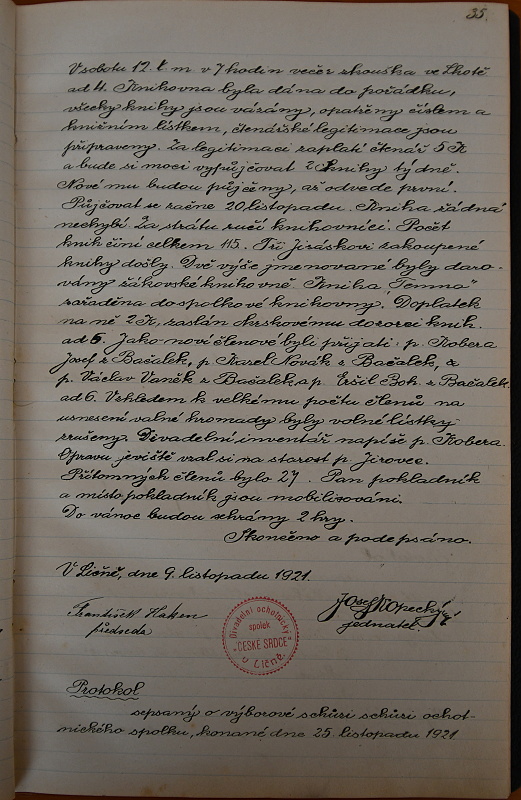 35.
V sobotu 12. t. m. v 7 hodin večer zkouška ve Lhotě
ad 4. Knihovna byla dána do pořádku,
všecky knihy jsou vázány, opatřeny číslem a
knižním lístkem, čtenářské legitimace jsou
připraveny. Za legitimaci zaplatí čtenář 5 K
a bude si moci vypůjčovat 2 knihy týdně.
Nové mu budou půjčeny, až odvede první.
Půjčovat se začne 20 listopadu. Kniha žádná
nechybí. Za ztrátu ručí knihovníci. Počet
knih činí celkem 115. Tři Jiráskovi zakoupené
knihy došly. Dvě výše jmenované byly daro-
vány žákovské knihovně. Kniha "Temno"
zařaděna do spolkové knihovny. Doplatek
na ně 2 K, zaslán okrskovému dozorci knih.
ad 5. Jako noví členové byli přijati: p. Kobera
Josef z Bačalek, p. Karel Novák z Bačalek, a
p. Václav Vaněk z Bačalek, a p. Eršil Boh. z Bačalek.
ad 6. Vzhledem k velkému počtu členů na
usnesení valné hromady byly volné lístky
zrušeny. Divadelní inventář napíše p. Kobera.
Opravu jeviště vzal si na starost p. Jirovec.
Přítomných členů bylo 27. Pan pokladník
a místopokladník jsou mobilisováni.
Do vánoc budou sehrány 2 hry.
Skončeno a podepsáno.
V Ličně, dne 9. listopadu 1921.
František Haken
předseda
Divadelní ochotnický
spolek
"ČESKÉ SRDCE"
v Ličně.
Josef Kopecký
jednatel.
Protokol
sepsaný o výborové schůzi schůzi ochot-
nického spolku, konané dne 25. listopadu 1921